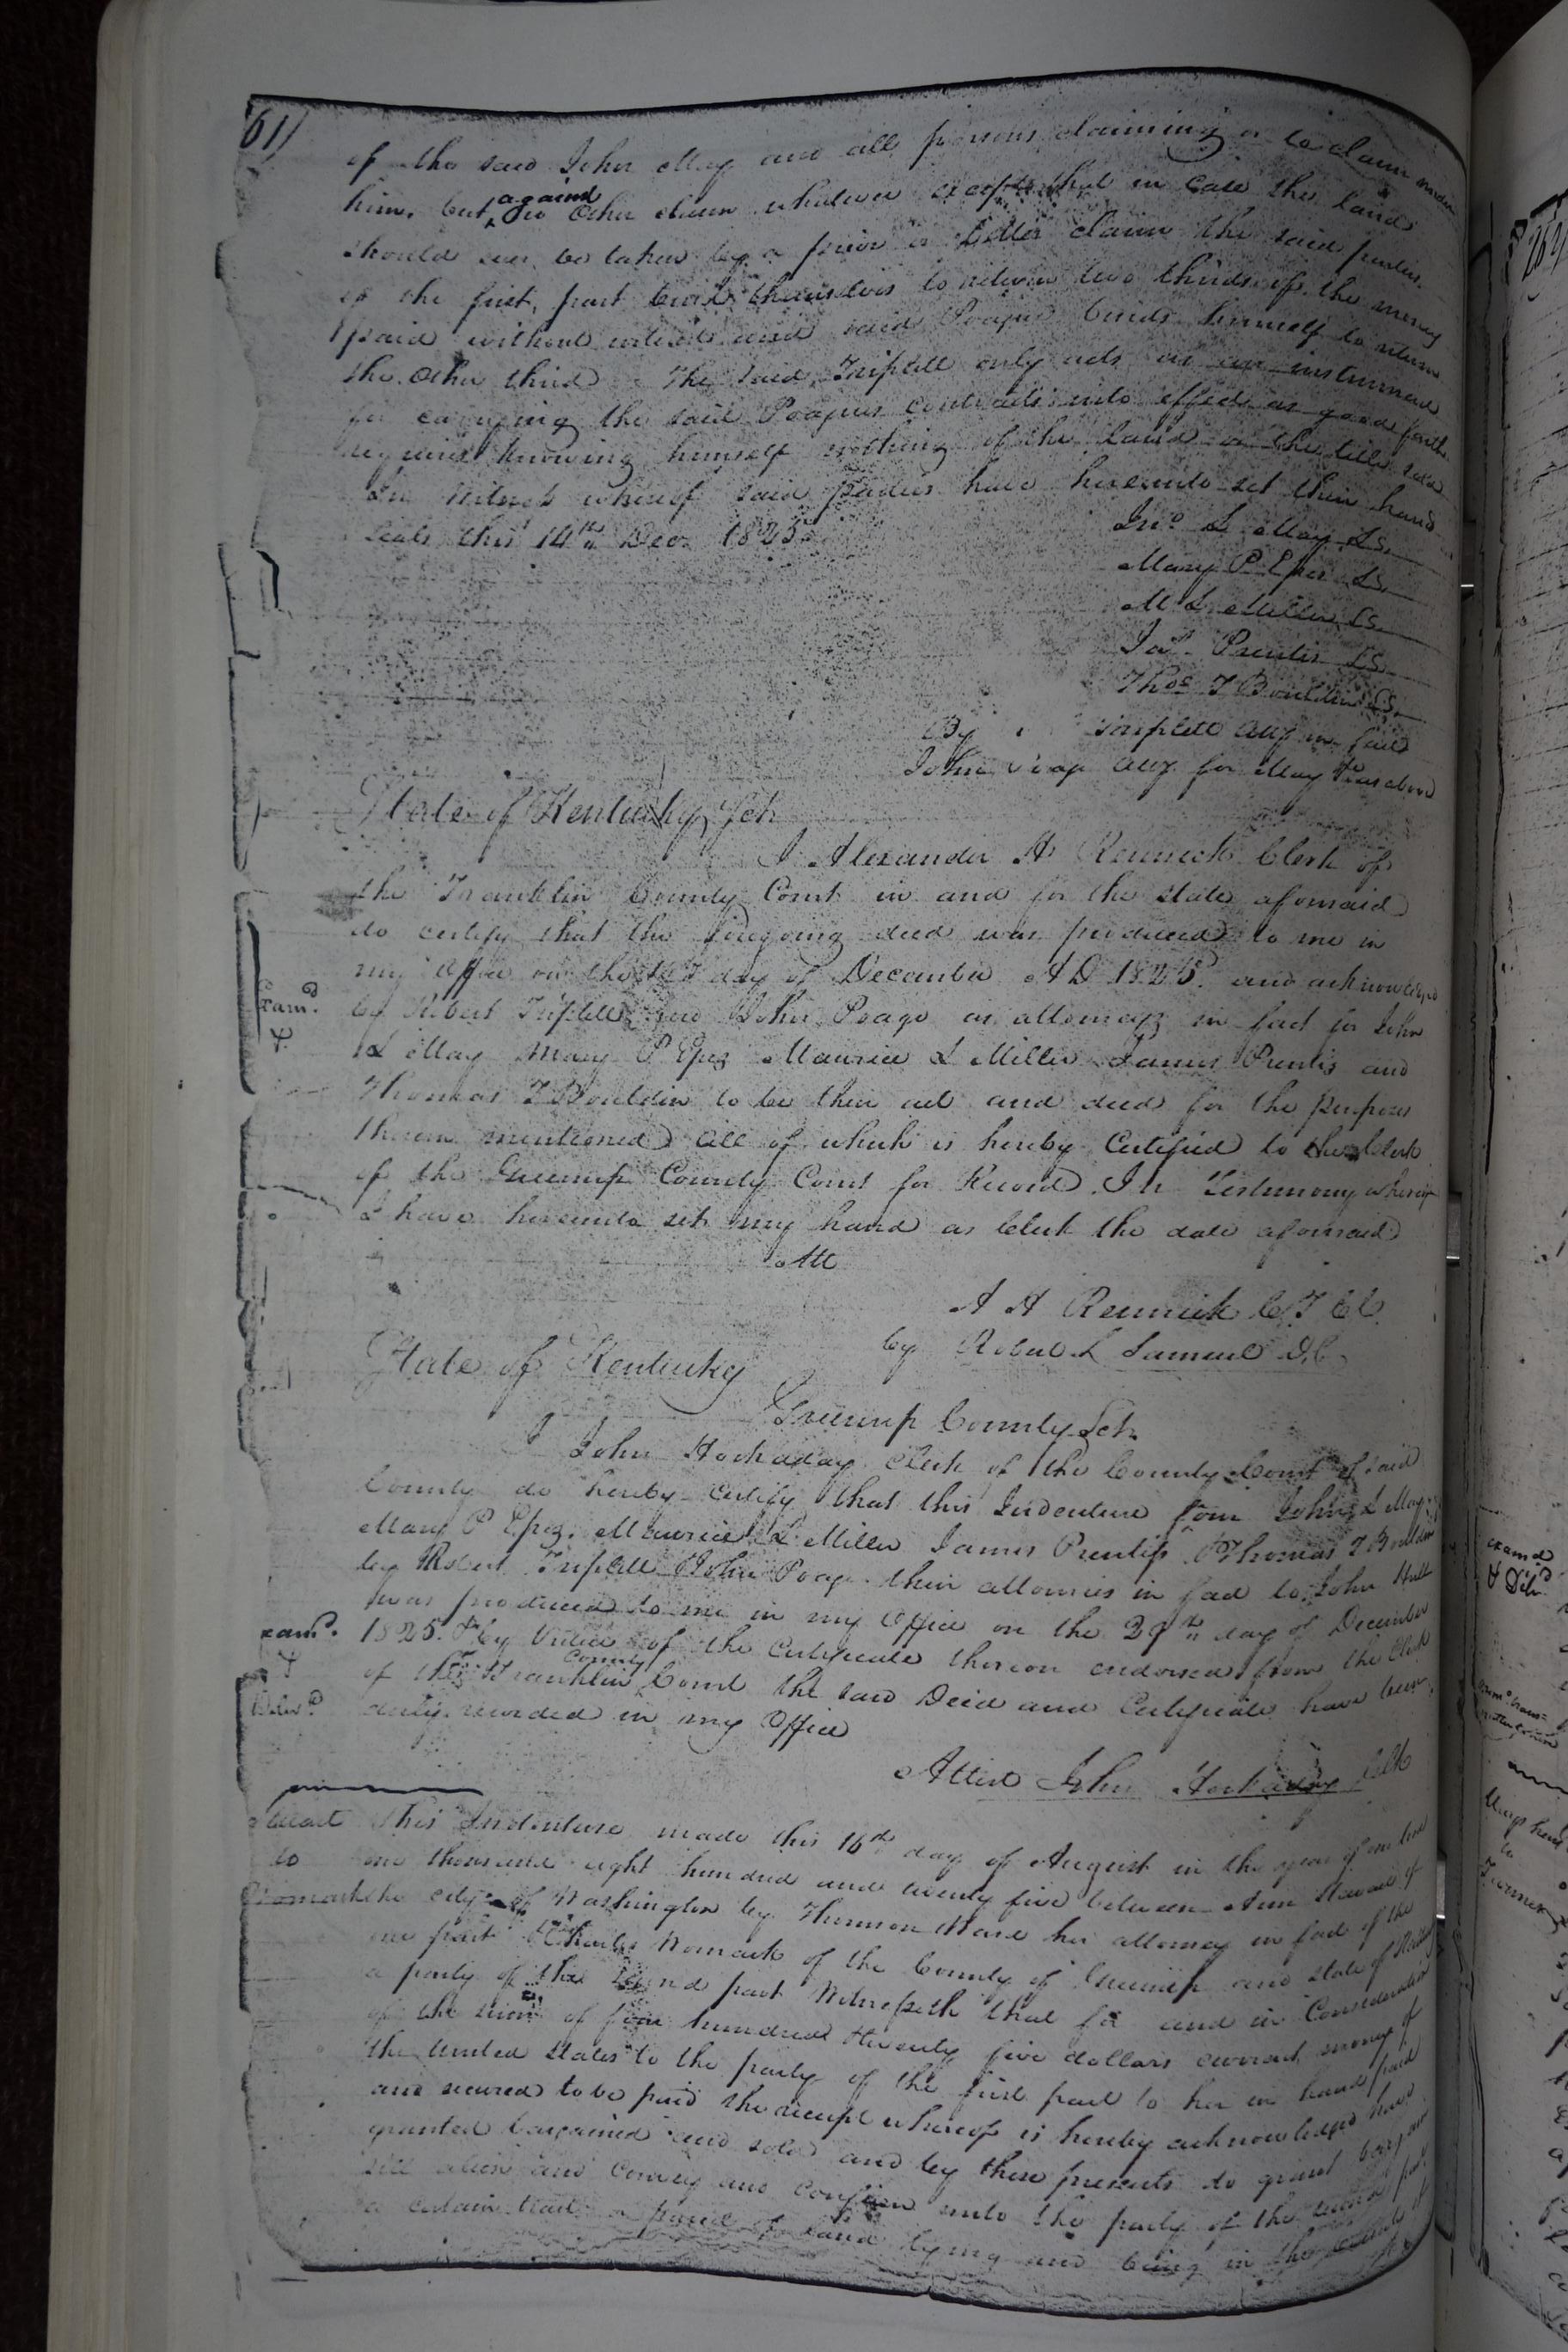 61
of the said John May and all persons claiming or to claim under
him, but against no other claim whatever except that in case the land
should ever be taken by a prior or better claim the said parties
of the first part bind themselves to return two thirds of the money
paid without interest and said Poague binds himself to return
the other third The said Triplett only acts as an instrument
for carrying the said Poagues contracts into effect as good faith
required knowing himself nothing of the land or the title sold
In witness whereof said parties have hereunto set their hand
seals this 14th Dec. 1825
Jno L May LS.
Mary P Epes LS.
M L Miller LS.
Jas. Prentis LS.
Thos T Bouldin LS.
By Triplett atty in fact
John Poage atty for May &c as above
State of Kentucky Sct
I Alexander H Rennick Clerk of
the Franklin County Court in and for the state aforesaid
do certify that the foregoing deed was produced to me in
my office on the day of December A D 1825. and acknowledged
by Robert Triplett and John Poage as attorneys in fact for John
L May Mary P Epes Maurice L Miller James Prentis and
Thomas T Bouldin to be their act and deed for the purposes
therein mentioned All of which is hereby Certified to the Clerk
of the Greenup County Court for Record. In Testimony whereof
I have hereunto set my hand as Clerk the date aforesaid
Att
A H Rennick C F CC
by Robert L Samuel D.C.
Exam.d
&
State of Kentucky
Greenup County Sct.
I John Hockaday Clerk of the County Court of said
County do hereby certify that this Indenture from John L May
Mary P Epes, Maurice L Miller James Prentis & Thomas T Bouldin
by Robert Triplett & John Poage their attornies in fact to John Hull
was produced to me in my Office on the 29th day of December
1825. & by Virtue of the Certificate thereon endorsed from the Clerk
of the Franklin County Court the said Deed and Certificate have been
duly recorded in my Office
Exam.d
&
Deliv.d
Attest John Hockaday Clk
Stewart
to
Womack
This Indenture made this 16th day of August in the year of our Lord
one thousand eight hundred and twenty five between Ann Stewart of
the city of Washington by Thomson Ware her attorney in fact of the
one part & Charles Womack of the County of Greenup and state of Kentucky
a party of the second part Witnesseth that for and in Consideration
of the sum of four hundred twenty five dollars current money of
the United States to the party of the first part to her in hand paid
and secured to be paid the receipt whereof is hereby acknowledged have
granted bargained and sold and by these presents do grant bargain
sell alien and convey and confirm unto the party of the second part
a certain tract or parcel of land lying and being in the county of